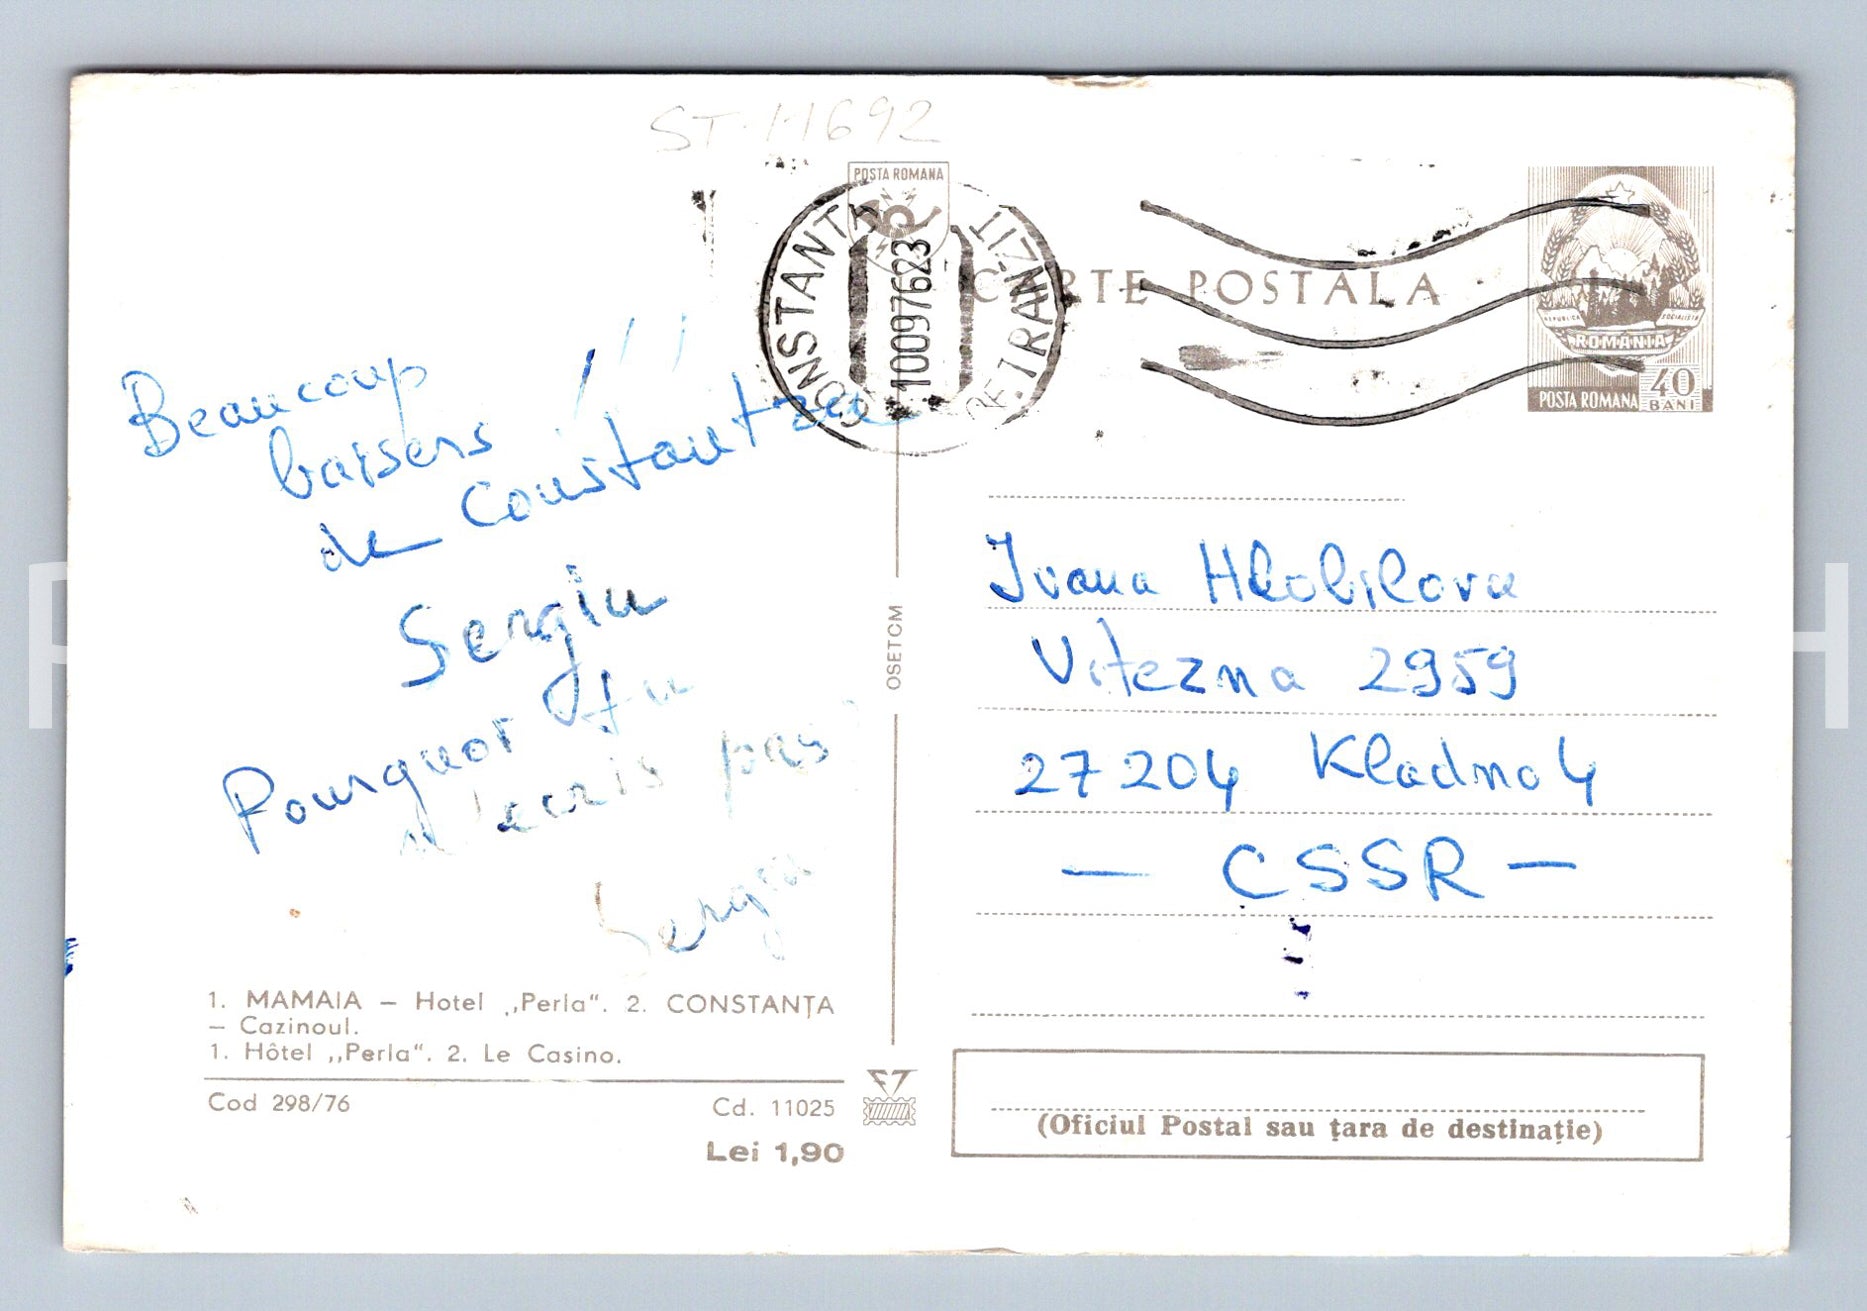 ST-11692
POSTA ROMANA
CONSTANTA
OF. TRANZIT
10097623
CARTE POSTALA
REPUBLICA SOCIALISTA
ROMANIA
POSTA ROMANA
40
BANI
Beaucoup
baisers !!!
de Constantza
Sergiu
Pourquoi tu
n'ecris pas?
Sergiu
OSETCM
Ivana Hlobilova
Vitezna 2959
27204 Kladno 4
— CSSR —
1. MAMAIA – Hotel „Perla“. 2. CONSTANȚA
– Cazinoul.
1. Hôtel „Perla“. 2. Le Casino.
Cod 298/76
Cd. 11025
Lei 1,90
(Oficiul Postal sau țara de destinație)